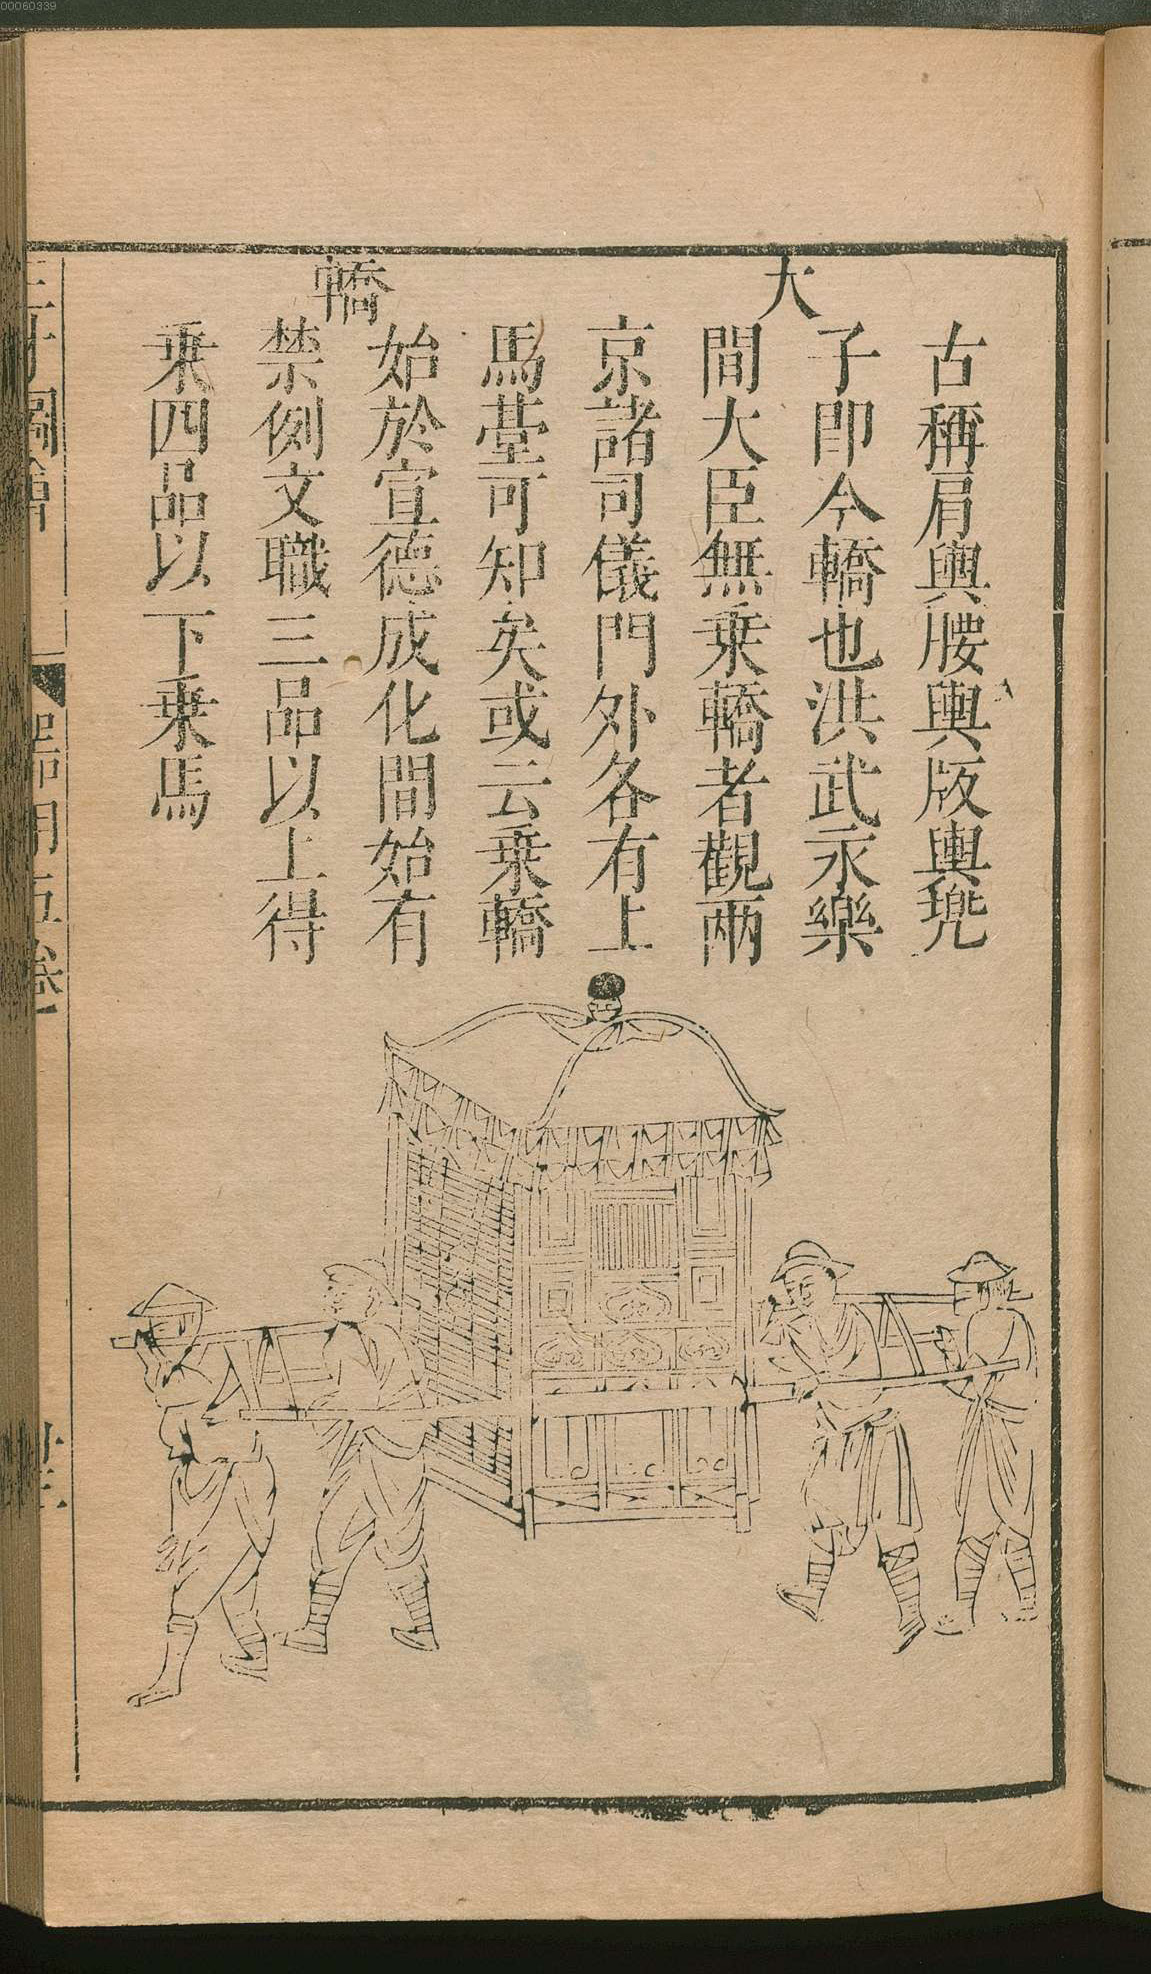 00060339
大轎
古稱肩輿腰輿版輿兠
子即今轎也洪武永樂
間大臣無乗轎者觀兩
京諸司儀門外各有上
馬䑓可知矣或云乗轎
始於宣德成化間始有
禁例文職三品以上得
乗四品以下乗馬
三才圖會
器用五卷